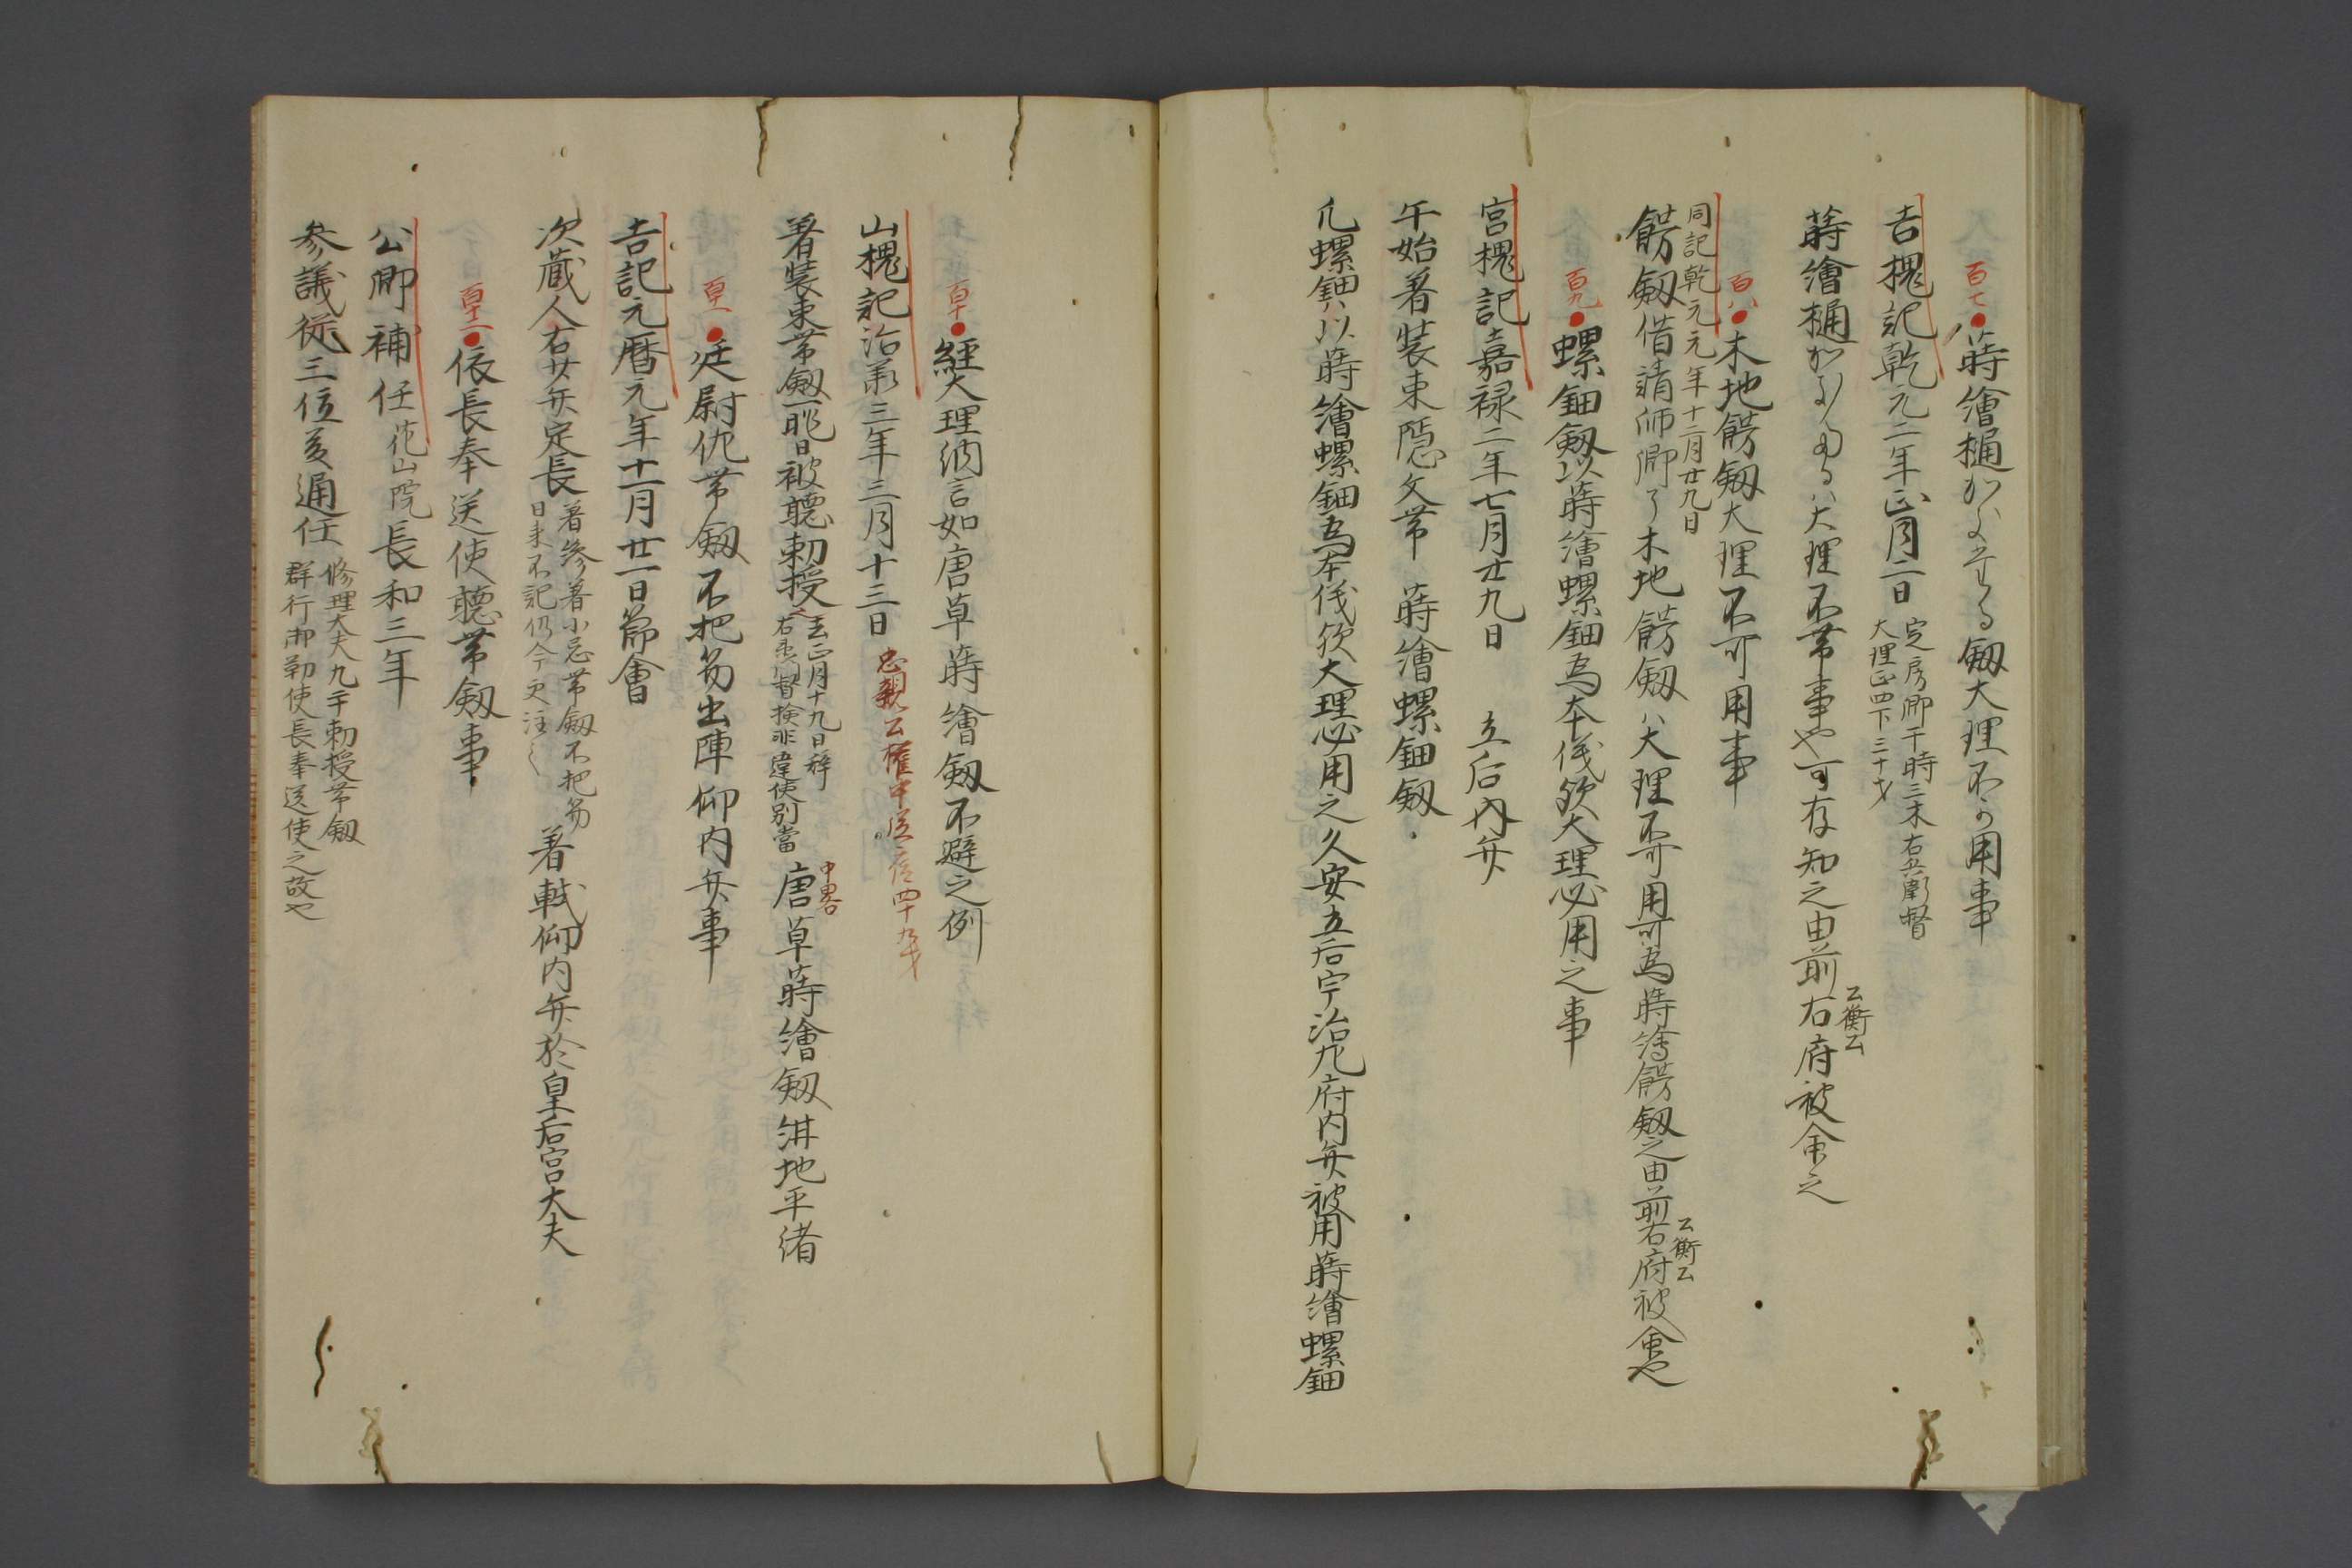 百七
蒔繪樋かふりする劔大理不可用事
吉槐記乾元二年正月二日
定房卿于時三木右兵衛督
大理正四下三十才
蒔繪樋かふりたるハ大理不帯事也可存知之由前右府被命之
公衡公
百八
木地餝劔大理不可用事
同記乾元元年十二月廿九日
餝劔借請師卿了木地餝劔ハ大理不可用可為蒔繪餝劔之由前右府被命也
公衡公
百九
螺鈿劔以蒔繪螺鈿為本儀欤大理必用之事
宮槐記嘉禄二年七月廿九日 立后内弁
午始着装束隠文帯 蒔繪螺鈿劔
凡螺鈿ハ以蒔繪螺鈿為本儀欤大理必用之久安立后宇治左府内弁被用蒔繪螺鈿
百十
経大理納言如唐草蒔繪劔不避之例
山槐記治承三年三月十三日
忠親公権中納言四十九才
著装束帯劔昨日被聴勅授
去正月十九日辞
右衛門督検非違使別當
中畧
唐草蒔繪劔紺地平緒
百十一
廷尉佐帯劔不把笏出陣仰内弁事
吉記元暦元年十一月廿一日節會
次蔵人右少弁定長
着参着小忌帯劔不把笏
日来不記仍今更注之
着軾仰内弁於皇后宮大夫
百十二
依長奉送使聴帯劔事
公卿補任花山院長和三年
参議従三位兼通任
修理大夫九月于勅授帯劔
群行卽勅使長奉送使之故也